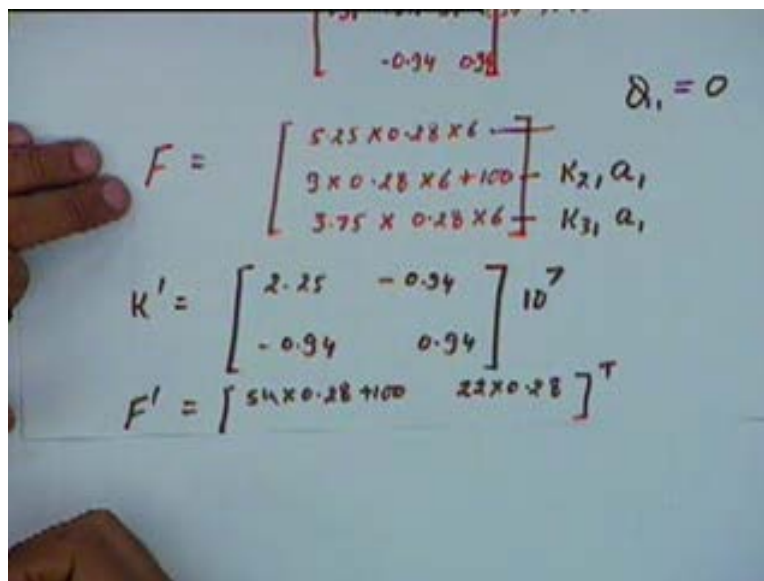 -0.94 0.94
Q₁ = 0
F = [ 5.25 × 0.28 × 6
9 × 0.28 × 6 + 100 - K₂₁ a₁
3.75 × 0.28 × 6 - K₃₁ a₁ ]
K' = [ 2.25 - 0.94
- 0.94 0.94 ] 10⁷
F' = [ 54 × 0.28 + 100 22 × 0.28 ]ᵀ